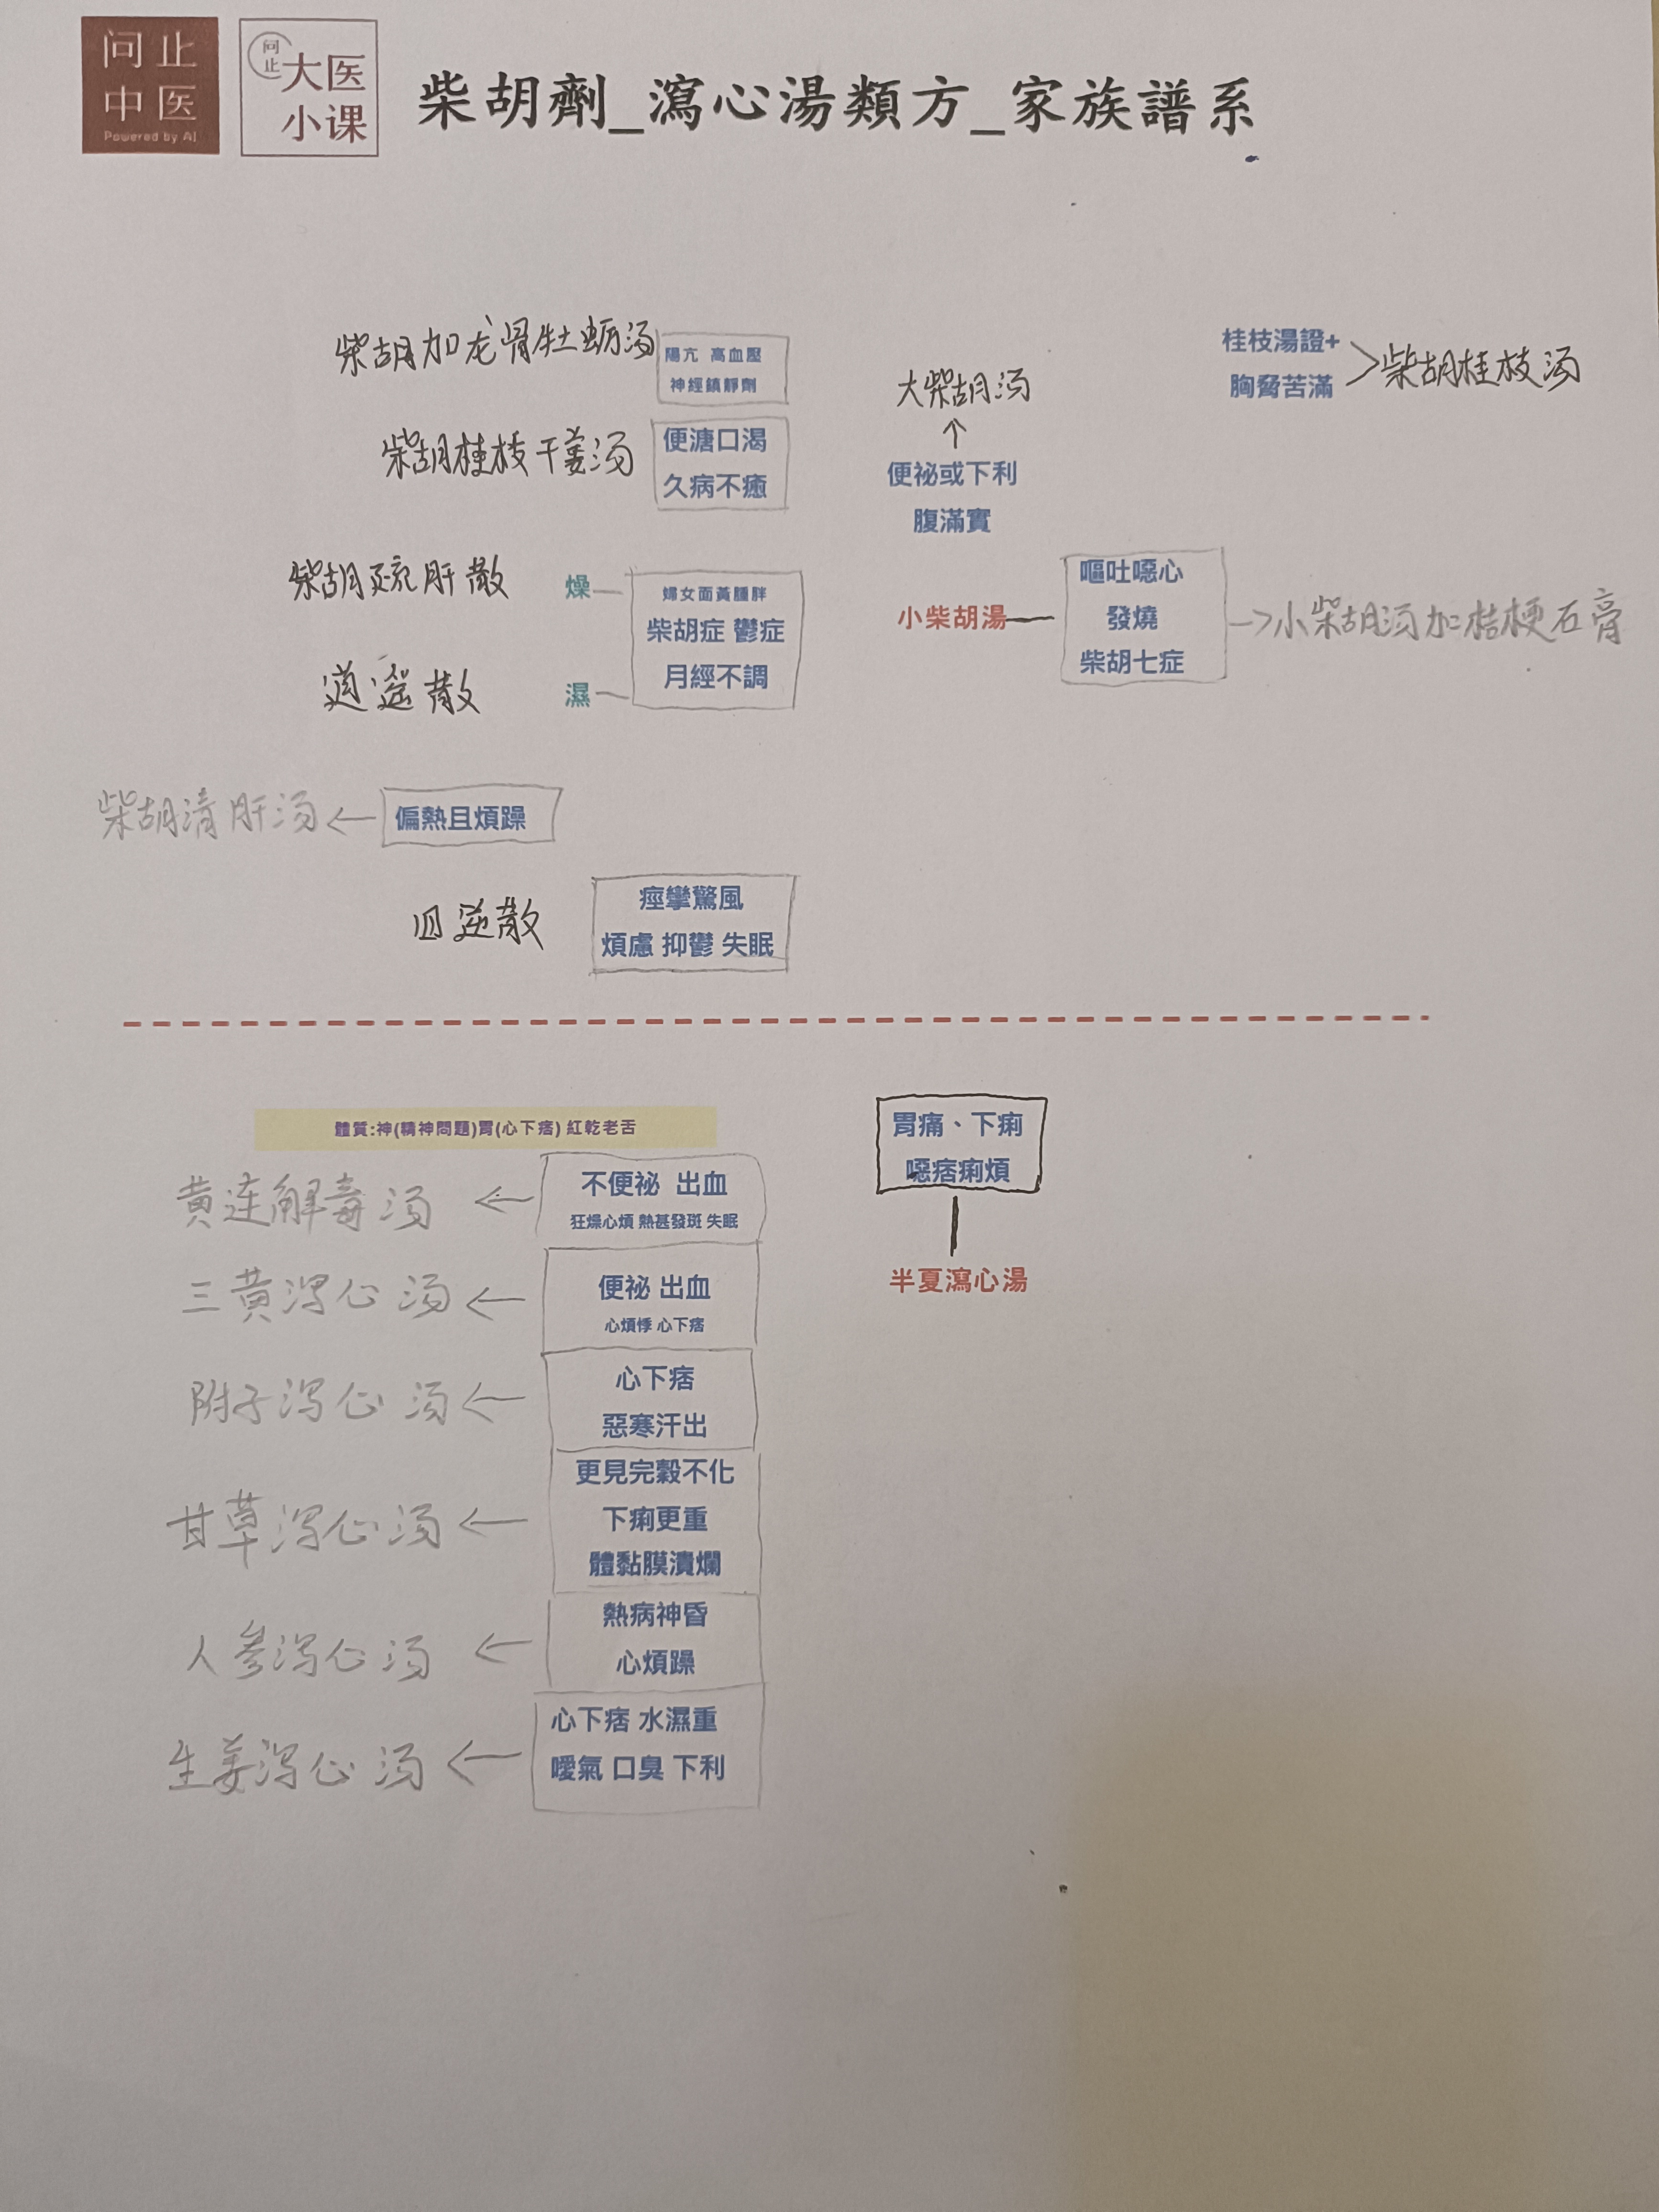 问止
中医
Powered by AI
问止
大医
小课
柴胡劑_瀉心湯類方_家族譜系
柴胡加龙骨牡蛎汤
陽亢 高血壓
神經鎮靜劑
柴胡桂枝干姜汤
便溏口渴
久病不癒
大柴胡汤
便祕或下利
腹滿實
桂枝湯證+
胸脅苦滿
柴胡桂枝汤
柴胡疏肝散
燥
婦女面黃腫胖
柴胡症 鬱症
月經不調
逍遥散
濕
小柴胡湯
嘔吐噁心
發燒
柴胡七症
小柴胡汤加桔梗石膏
柴胡清肝汤
偏熱且煩躁
四逆散
痙攣驚風
煩慮 抑鬱 失眠
體質:神(精神問題)胃(心下痞) 紅乾老舌
胃痛、下痢
噁痞痢煩
半夏瀉心湯
黄连解毒汤
不便祕 出血
狂燥心煩 熱甚發斑 失眠
三黄泻心汤
便祕 出血
心煩悸 心下痞
附子泻心汤
心下痞
惡寒汗出
甘草泻心汤
更見完穀不化
下痢更重
體黏膜潰爛
人参泻心汤
熱病神昏
心煩躁
生姜泻心汤
心下痞 水濕重
噯氣 口臭 下利